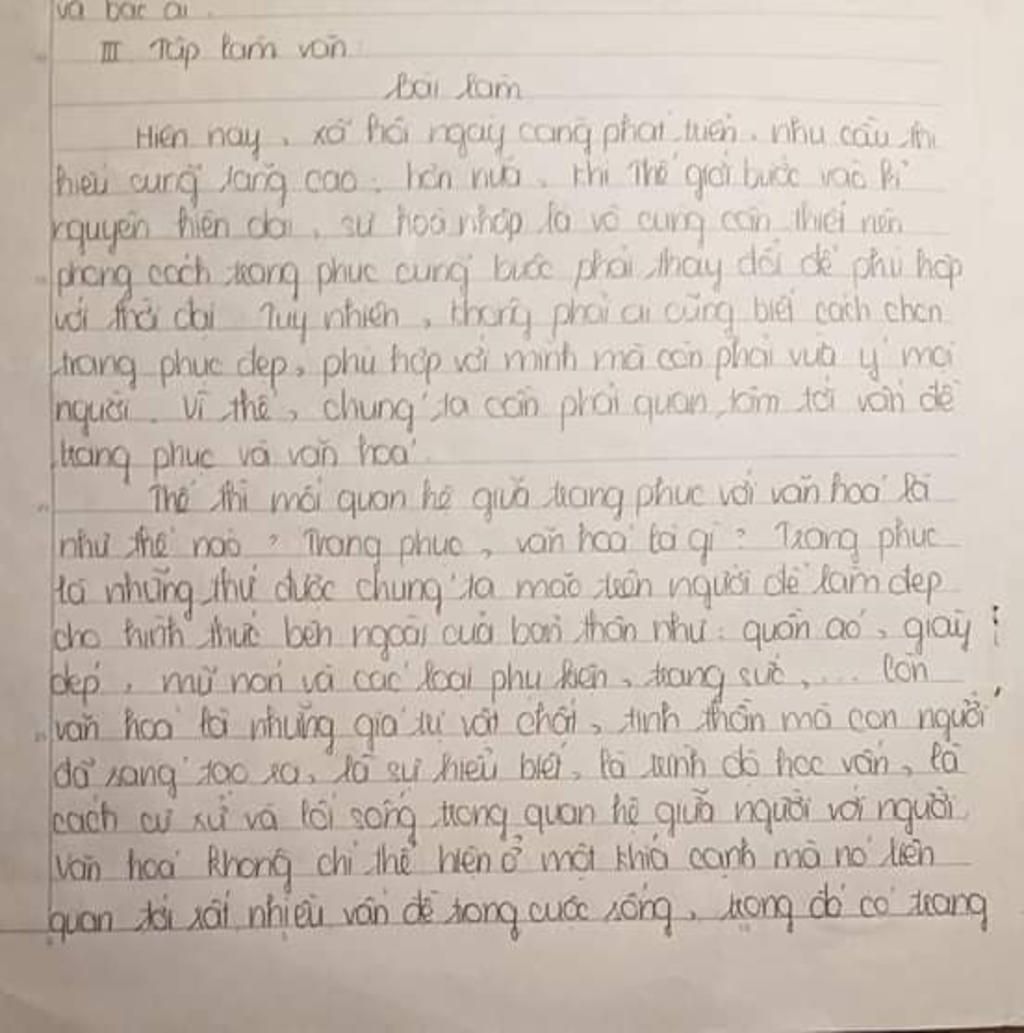 và bác ái.
III Tập làm văn
Bài làm
Hiện nay, xã hội ngày càng phát triển, nhu cầu thị
hiếu cũng tăng cao. hơn nữa, khi Thế giới bước vào kỉ
nguyên hiện đại, sự hoà nhập là vô cùng cần thiết nên
phong cách trang phục cũng bước phải thay đổi để phù hợp
với thời đại Tuy nhiên, không phải ai cũng biết cách chọn
trang phục đẹp, phù hợp với mình mà còn phải vừa ý mọi
người. Vì thế, chúng ta cần phải quan tâm tới vấn đề
trang phục và văn hoá.
Thế thì mối quan hệ giữa trang phục với văn hoá là
như thế nào? Trang phục, văn hoá là gì? Trang phục
là những thứ được chúng ta mặc trên người để làm đẹp
cho hình thức bên ngoài của bản thân như: quần áo, giày
dép, mũ nón và các loại phụ kiện, trang sức,... Còn
văn hoá là những giá trị vật chất, tinh thần mà con người
đã sáng tạo ra, là sự hiểu biết, là trình độ học vấn, là
cách cư xử và lối sống trong quan hệ giữa người với người
Văn hoá không chỉ thể hiện ở một khía cạnh mà nó liên
quan tới rất nhiều vấn đề trong cuộc sống, trong đó có trang